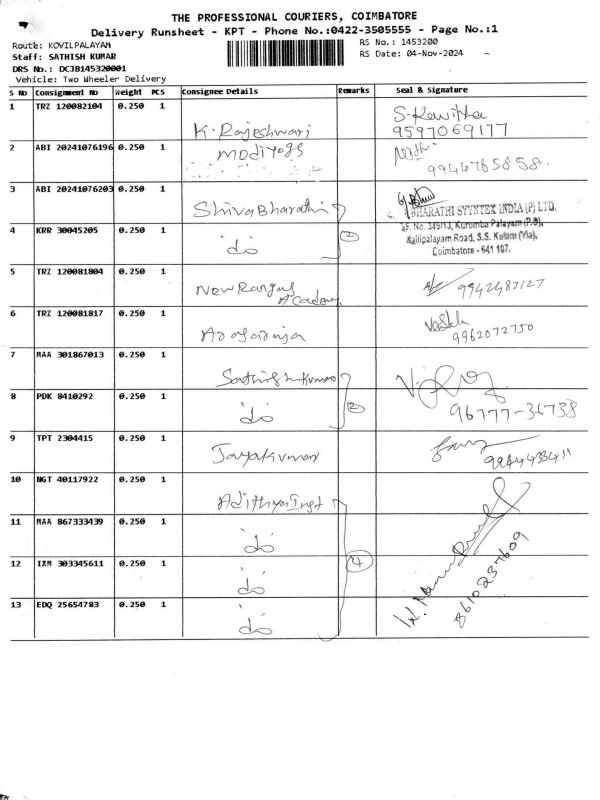 THE PROFESSIONAL COURIERS, COIMBATORE
Delivery Runsheet - KPT - Phone No.:0422-3505555 - Page No.:1
Route: KOVILPALAYAM
RS No.: 1453200
Staff: SATHISH KUMAR
RS Date: 04-Nov-2024
DRS No.: DCJB145320001
Vehicle: Two Wheeler Delivery
S No Consignment No Weight PCS Consignee Details Remarks Seal & Signature
1 TRZ 120082104 0.250 1 K. Rajeshwari S. Kavitha
9597069177
2 ABI 20241076196 0.250 1 modiyogs
9944765858
3 ABI 20241076203 0.250 1 Shiva Bharathi
BHARATHI SYYNTEX INDIA (P) LTD.
S.F. No. 349/1J, Kurumba Palayam (P.O),
Kailipalayam Road, S.S. Kulam (Via),
Coimbatore - 641 107.
4 KRR 30045205 0.250 1 do 2
5 TRZ 120081804 0.250 1 New Rangas
Academy
9942483127
6 TRZ 120081817 0.250 1
9962072750
7 MAA 301867013 0.250 1 Sathish Kumar
8 PDK 8410292 0.250 1 do 2
96777-36738
9 TPT 2304415 0.250 1 Jayakumar
9944433411
10 NGT 40117922 0.250 1 Adithya Inst
11 MAA 867333439 0.250 1 do
12 IXM 303345611 0.250 1 do 4
8610237609
13 EDQ 25654783 0.250 1 do